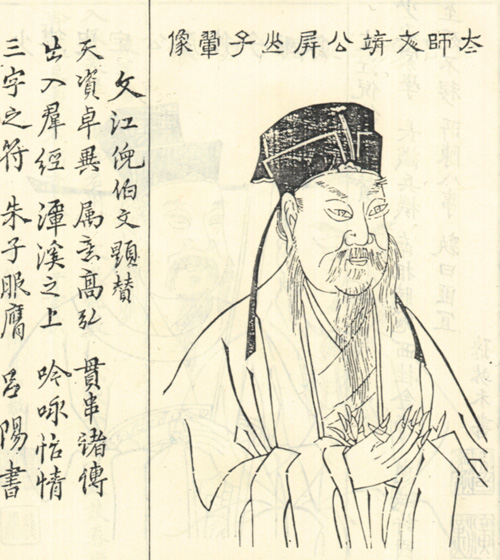 太師文靖公屏山子翬像
文江倪伯文題贊
天資卓異 属意高弘 貫串諸傳
出入羣經 潭溪之上 吟咏怡情
三字之符 朱子服膺 呂陽書